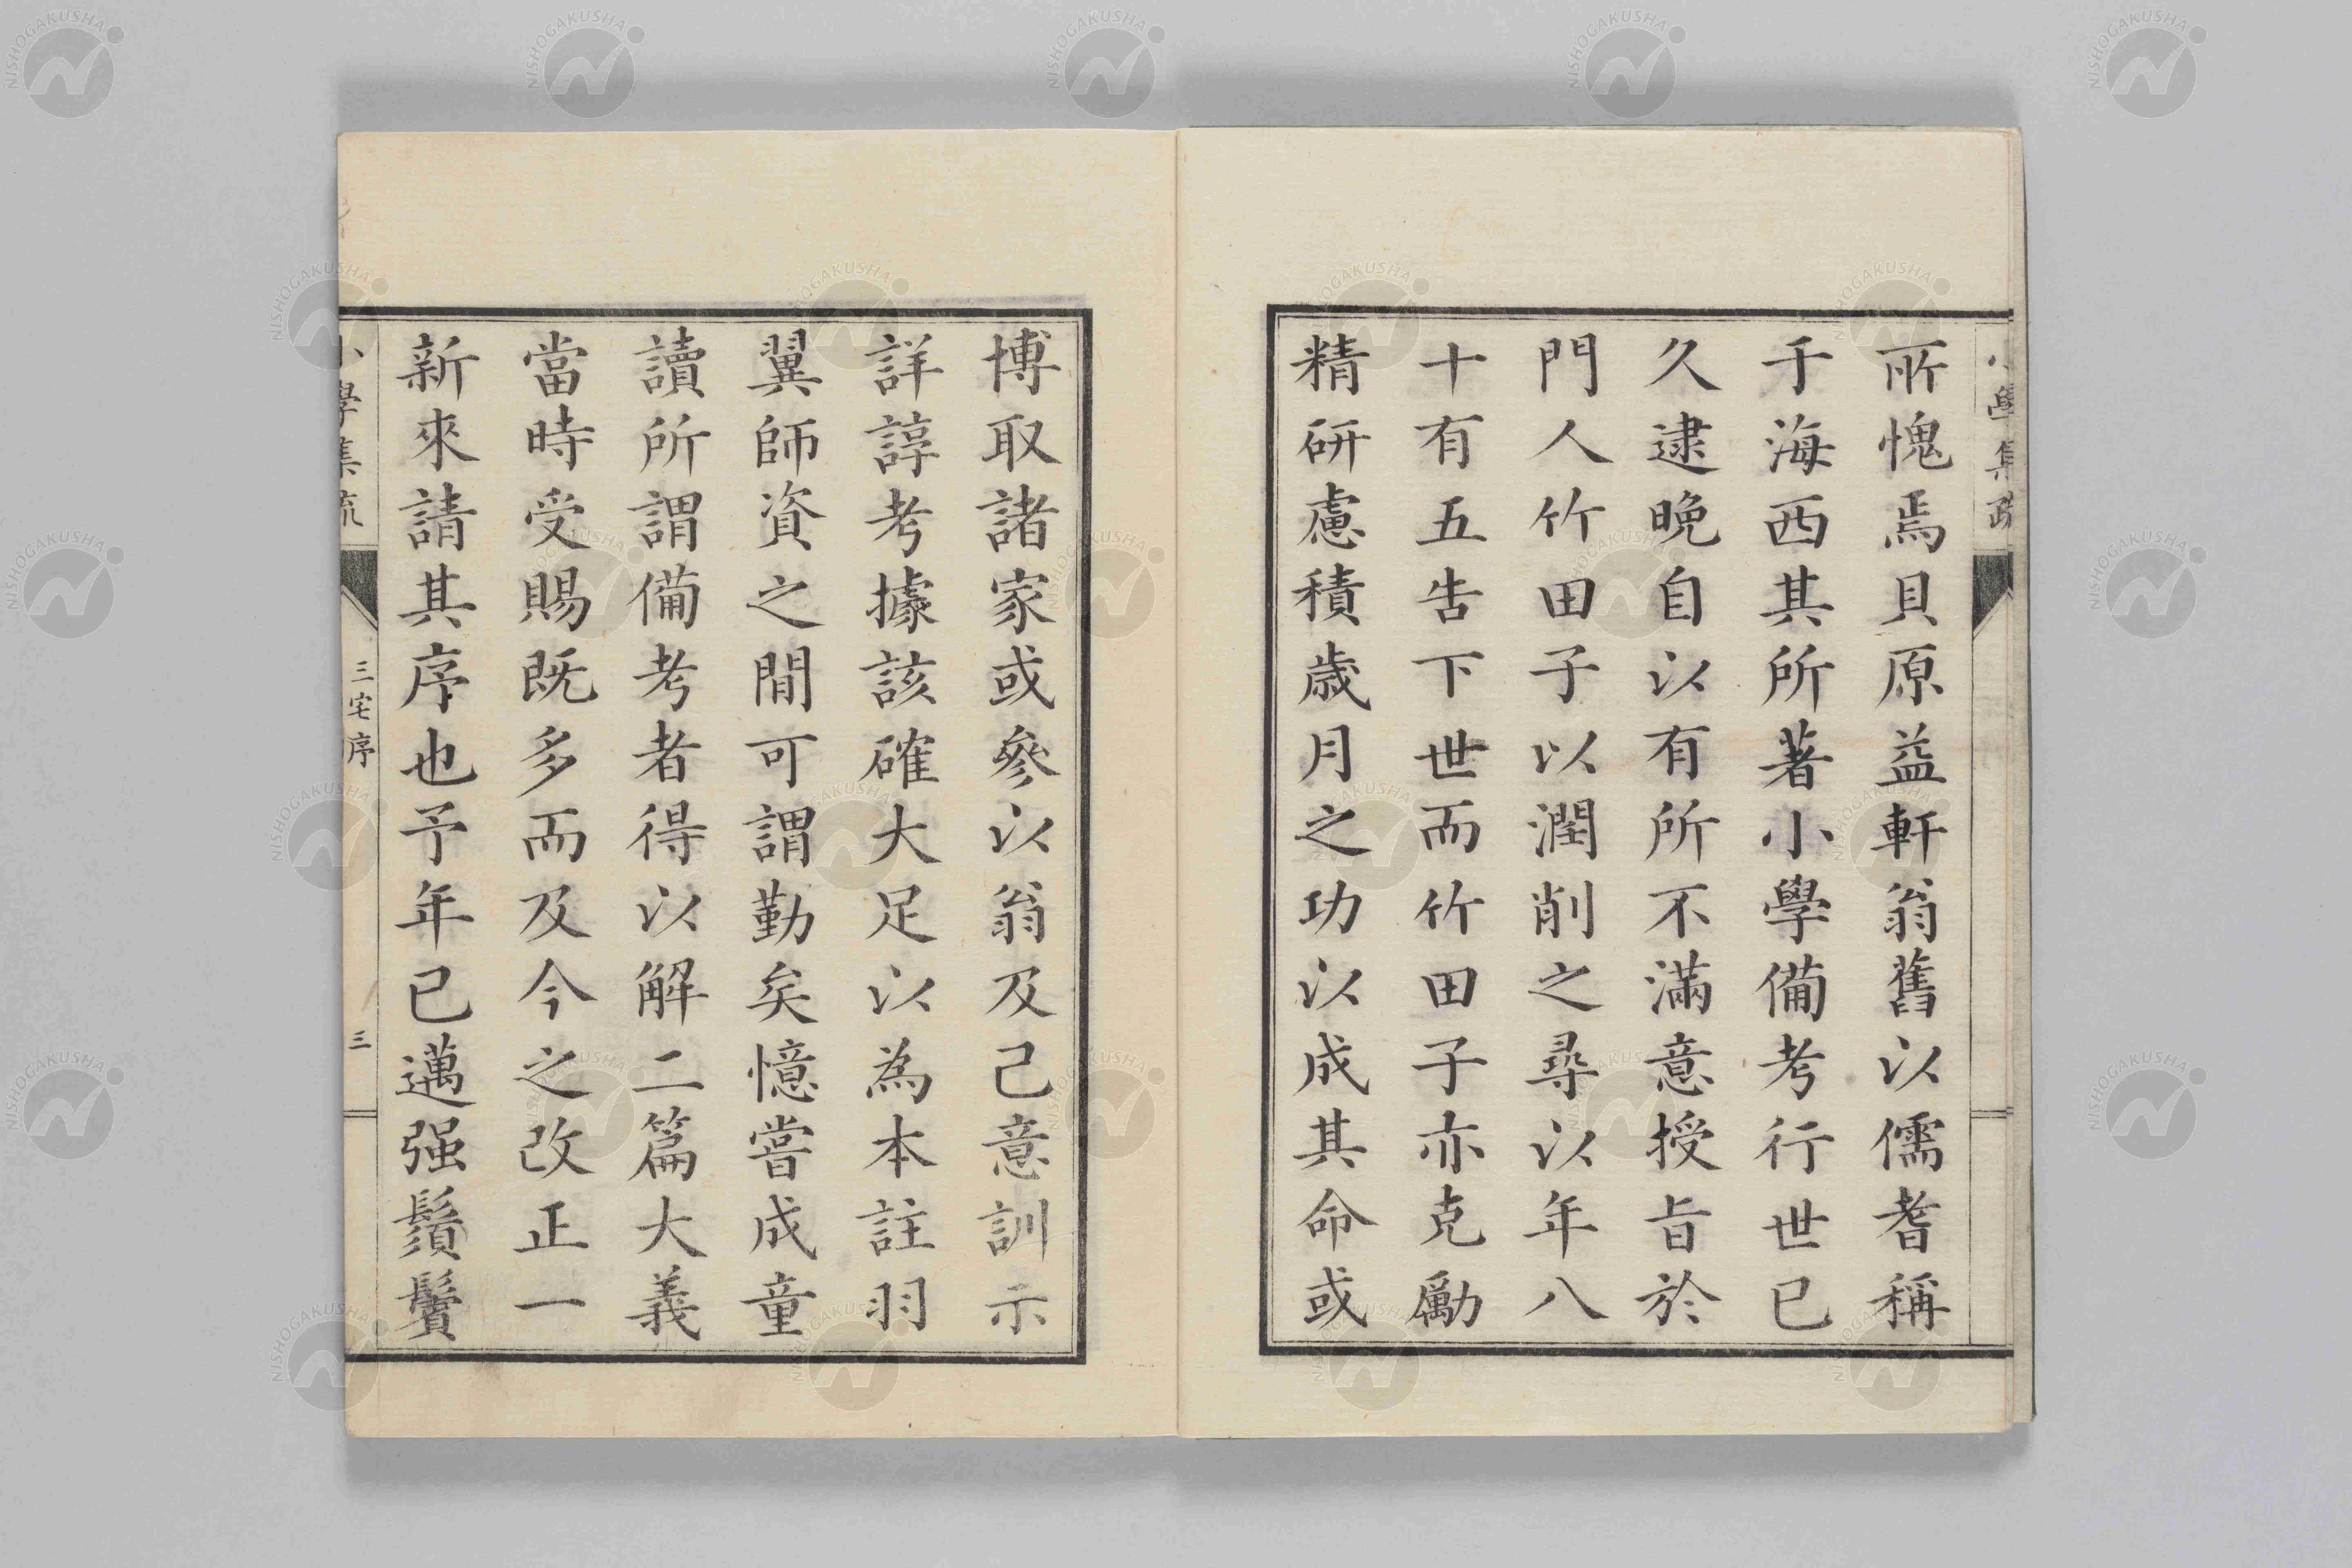 小學集疏
所愧焉貝原益軒翁舊以儒耆稱
于海西其所著小學備考行世已
久逮晚自以有所不滿意授旨於
門人竹田子以潤削之尋以年八
十有五告下世而竹田子亦克勵
精研慮積歲月之功以成其命或
博取諸家或參以翁及己意訓示
詳諄考據該確大足以為本註羽
翼師資之間可謂勤矣憶嘗成童
讀所謂備考者得以解二篇大義
當時受賜既多而及今之改正一
新來請其序也予年已邁强鬚鬢
小學集疏
三宅序
三
NISHOGAKUSHA